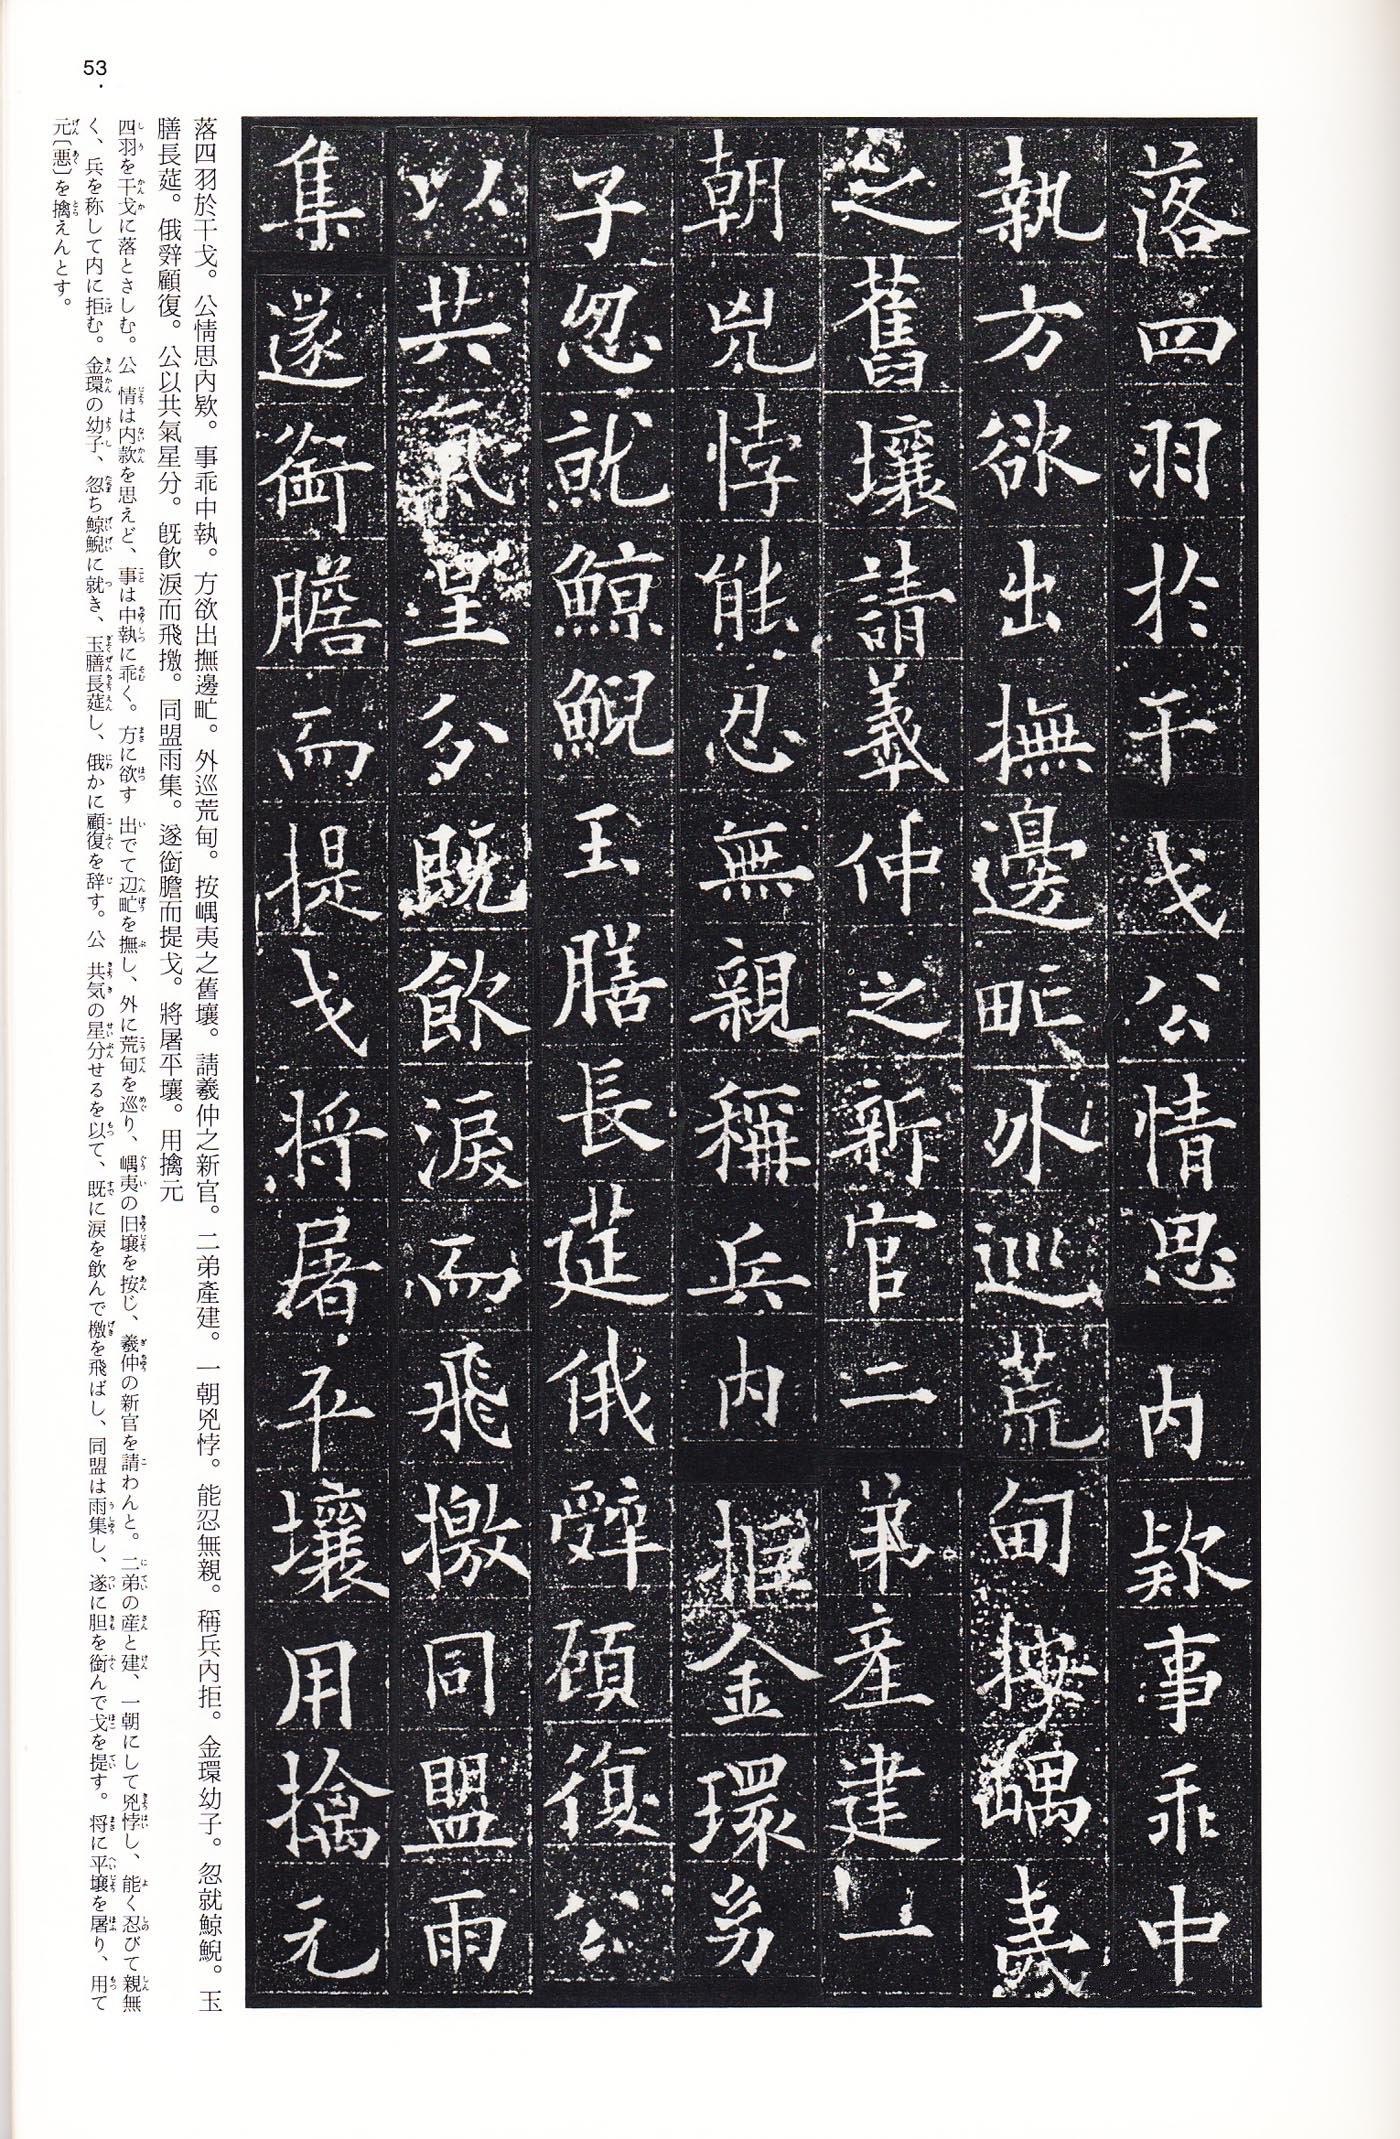 53
落四羽於干戈公情思内欵事乖中
執方欲出撫邊甿外巡荒甸按嵎夷
之舊壤請羲仲之新官二弟産建一
朝兇悖能忍無親稱兵内拒金環幼
子忽就鯨鯢玉膳長莚俄辤顧復公
以共氣星分既飲淚而飛撽同盟雨
集遂銜膽而提戈将屠平壤用擒元
落四羽於干戈。公情思內欵。事乖中執。方欲出撫邊甿。外巡荒甸。按嵎夷之舊壤。請羲仲之新官。二弟產建。一朝兇悖。能忍無親。稱兵內拒。金環幼子。忽就鯨鯢。玉
膳長莚。俄辤顧復。公以共氣星分。既飮淚而飛撽。同盟雨集。遂銜膽而提戈。將屠平壤。用擒元
四羽を干戈に落とさしむ。公 情は内款を思えど、事は中執に乖く。方に欲す 出でて辺甿を撫し、外に荒甸を巡り、嵎夷の旧壌を按じ、羲仲の新官を請わんと。二弟の産と建、一朝にして兇悖し、能く忍びて親無
く、兵を称して内に拒む。金環の幼子、忽ち鯨鯢に就き、玉膳長莚し、俄かに顧復を辞す。公 共気の星分せるを以て、既に涙を飲んで檄を飛ばし、同盟は雨集し、遂に胆を銜んで戈を提す。将に平壌を屠り、用て
元〔悪〕を擒えんとす。